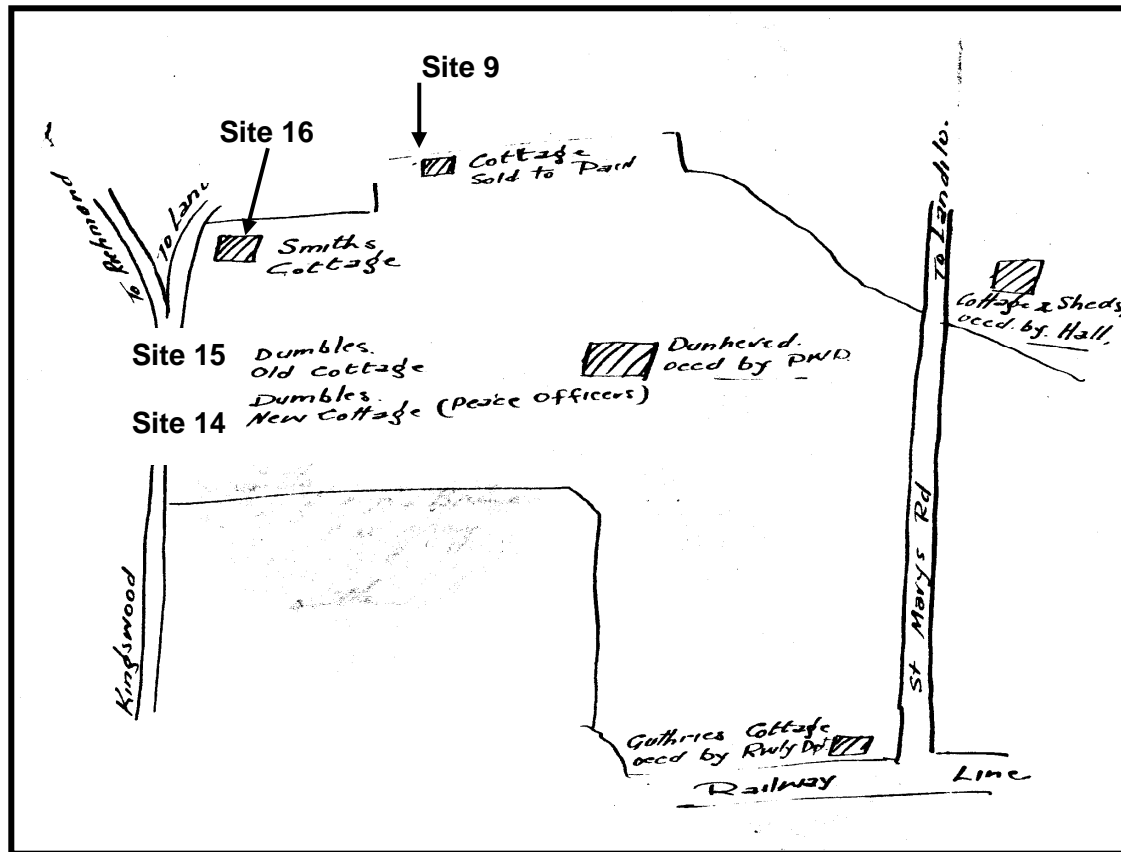 Site 9
Site 16
Cottage
Sold to Pain
To Richmond
To Land
Smiths
Cottage
To Landilo.
Cottage & Sheds
occd. by Hall,
Site 15
Dumbles.
Old Cottage
Dunheved.
occd by PWD.
Site 14
Dumbles.
New Cottage (Peace Officers)
Kingswood
St Marys Rd
Guthries Cottage
occd by Rwly Dpt
Railway Line